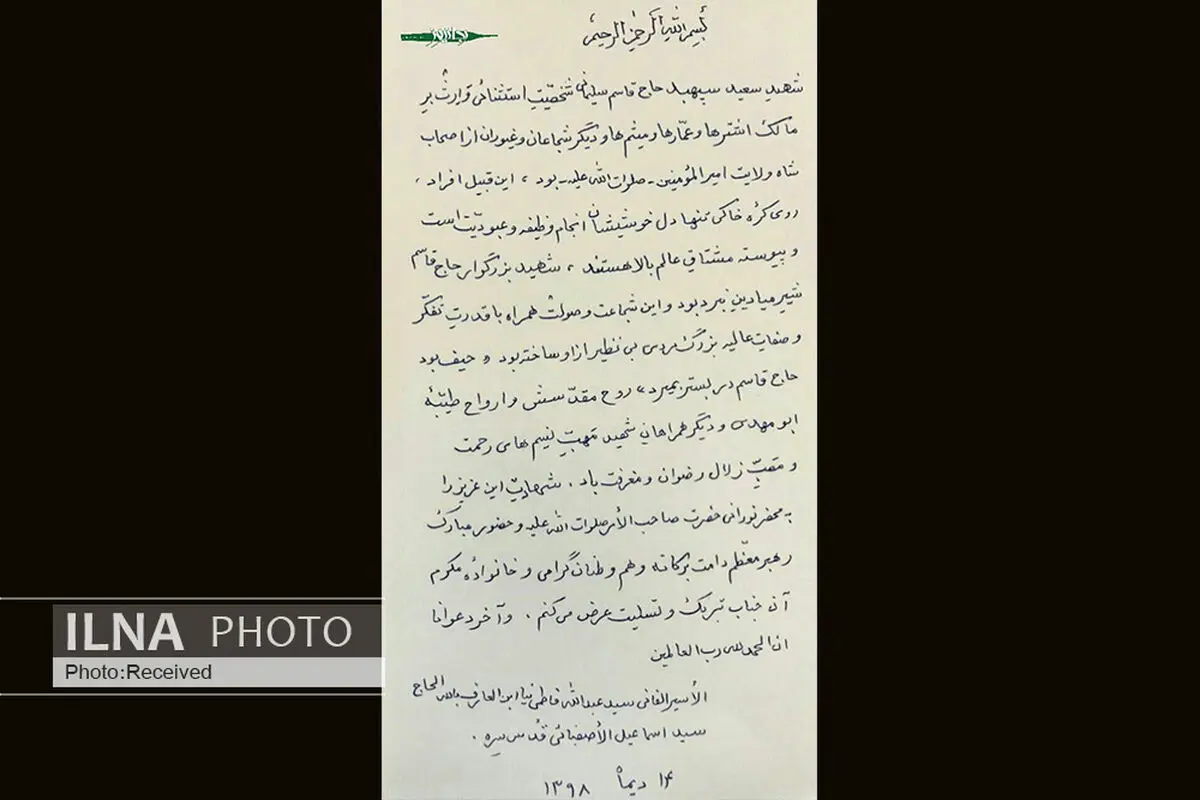 بسم الله الرحمن الرحیم
شهید سعید سپهبد حاج قاسم سلیمانی شخصیّتِ استثنائی و وارث بر
مالک اشترها و عمّارها و میثم‌ها و دیگر شجاعان و غیوران از اصحاب
شاه ولایت امیرالمؤمنین ـ صلوات الله علیه ـ بود ، این قبیل افراد ،
روی کرهٔ خاکی تنها دل خوشیشان انجام وظیفه و عبودیّت است
و پیوسته مشتاقِ عالم بالا هستند ، شهید بزرگوار حاج قاسم
شیرِ میادینِ نبرد بود و این شجاعت و صولت همراه با قدرتِ تفکّر
و صفات عالیه بزرگ مردی بی نظیر از او ساخته بود و حیف بود
حاج قاسم در بستر بمیرد ، روح مقدّسش و ارواح طیّبهٔ
ابومهدی و دیگر همراهانِ شهید مَهبِّ نسیم های رحمت
و مَصبِّ زلال رضوان و مغفرت باد . شهادتِ این عزیز را
به محضر نورانی حضرت صاحب الأمر صلوات الله علیه و حضور مبارک
رهبر معظّم دامت برکاته و هم وطنان گرامی و خانوادهٔ مکرم
آن جناب تبریک و تسلیت عرض می‌کنم . وآخر دعوانا
ان الحمد لله رب العالمین
الأسیر الفانی سید عبدالله فاطمی نیا ابن العارف بالله الحاج
سید اسماعیل الأصفیائی قدّس سره .
۱۴ دیماه ۱۳۹۸
ILNA PHOTO
Photo:Received